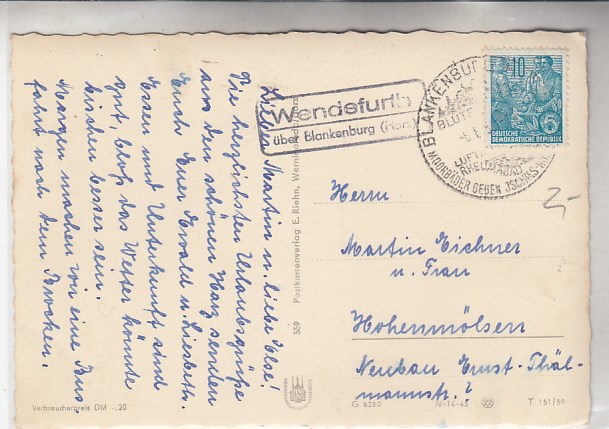 Lieber Martin u. liebe Ilse!
Die herzlichsten Urlaubsgrüße
aus dem schönen Harz senden
Euch Euer Ewald u. Lisbeth.
Essen und Unterkunft sind
gut, bloß das Wetter könnte
bischen besser sein.
Morgen machen wir eine Bus-
fahrt nach dem Brocken.
Wendefurth
über Blankenburg (Harz)
BLANKENBURG
BLÜTEN
LUFT
KREUZBAD
MOORBÄDER GEGEN ISCHIAS
10
DEUTSCHE
DEMOKRATISCHE REPUBLIK
5
2,-
Herrn
Martin Eichner
u. Frau
Hohenmölsen
Neubau Ernst-Thäl-
mannstr. ?
559 Postkartenverlag E. Riehn, Wernigerode/Harz
Verbraucherpreis DM -,20
G 6262
IV-14-45
T 151/59